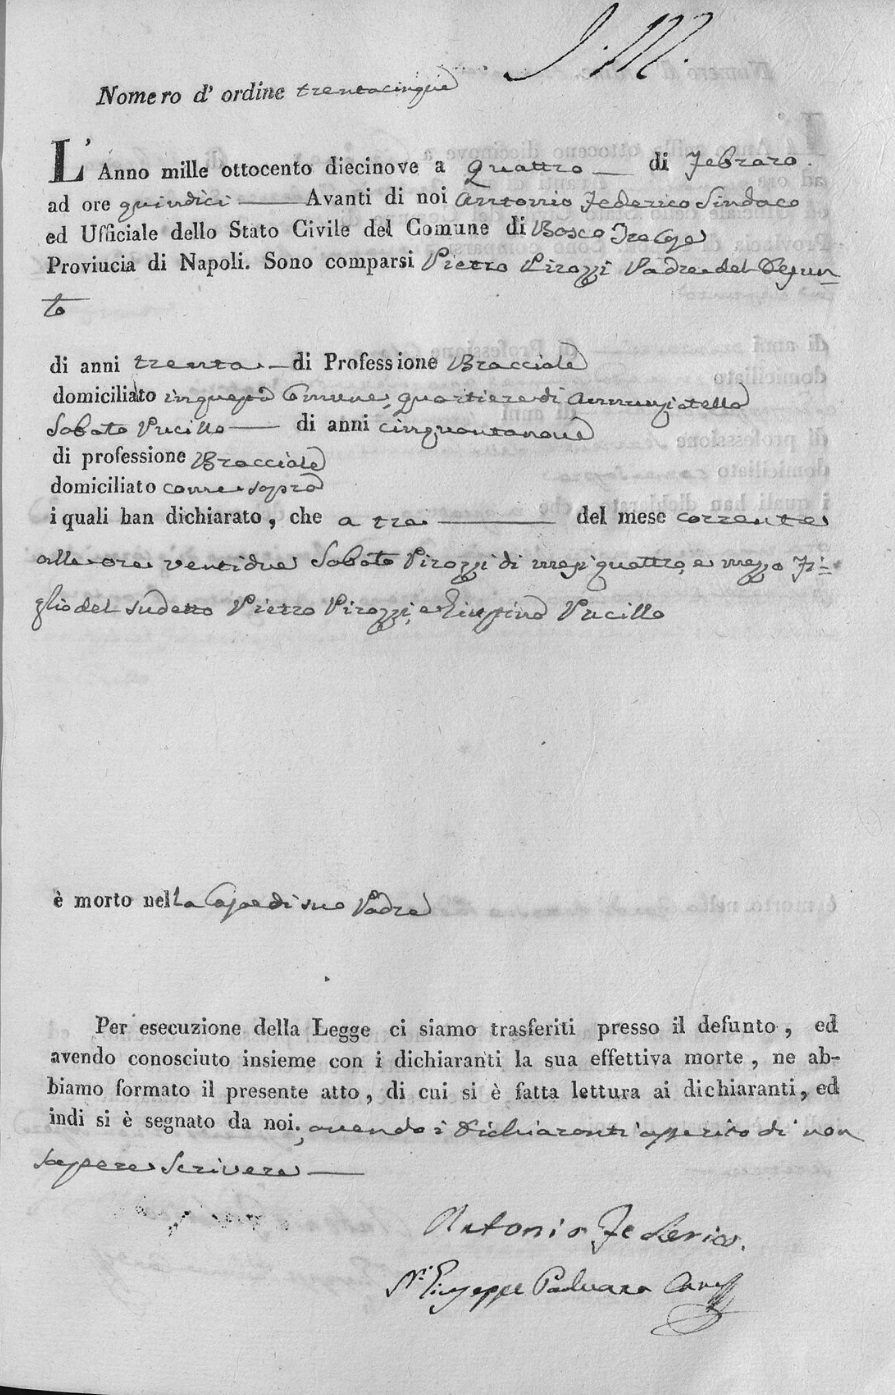 Nomero d' ordine trentacinque
L' Anno mille ottocento diecinove a quattro di Febraro
ad ore quindici Avanti di noi Antonio Federico Sindaco
ed Ufficiale dello Stato Civile del Comune di Bosco Tre Case
Proviucia di Napoli. Sono comparsi Pietro Pirozzi Padre del Defun
to
di anni trenta di Professione Bracciale
domiciliato in questo Comune, quartiere di Annunziatella
Sabato Vucillo di anni cinquantanove
di professione Bracciale
domiciliato come sopra
i quali han dichiarato, che a tre del mese corrente
alle ore ventidue Sabato Pirozzi di mesi quattro, e mezzo Fi-
glio del sudetto Pietro Pirozzi, e Vucillo
è morto nella Casa di suo Padre
Per esecuzione della Legge ci siamo trasferiti presso il defunto, ed
avendo conosciuto insieme con i dichiaranti la sua effettiva morte, ne ab-
biamo formato il presente atto, di cui si è fatta lettura ai dichiaranti, ed
indi si è segnato da noi; avendo i Dichiaranti asserito di non
sapere Scrivere
Antonio Federico
Giuseppe